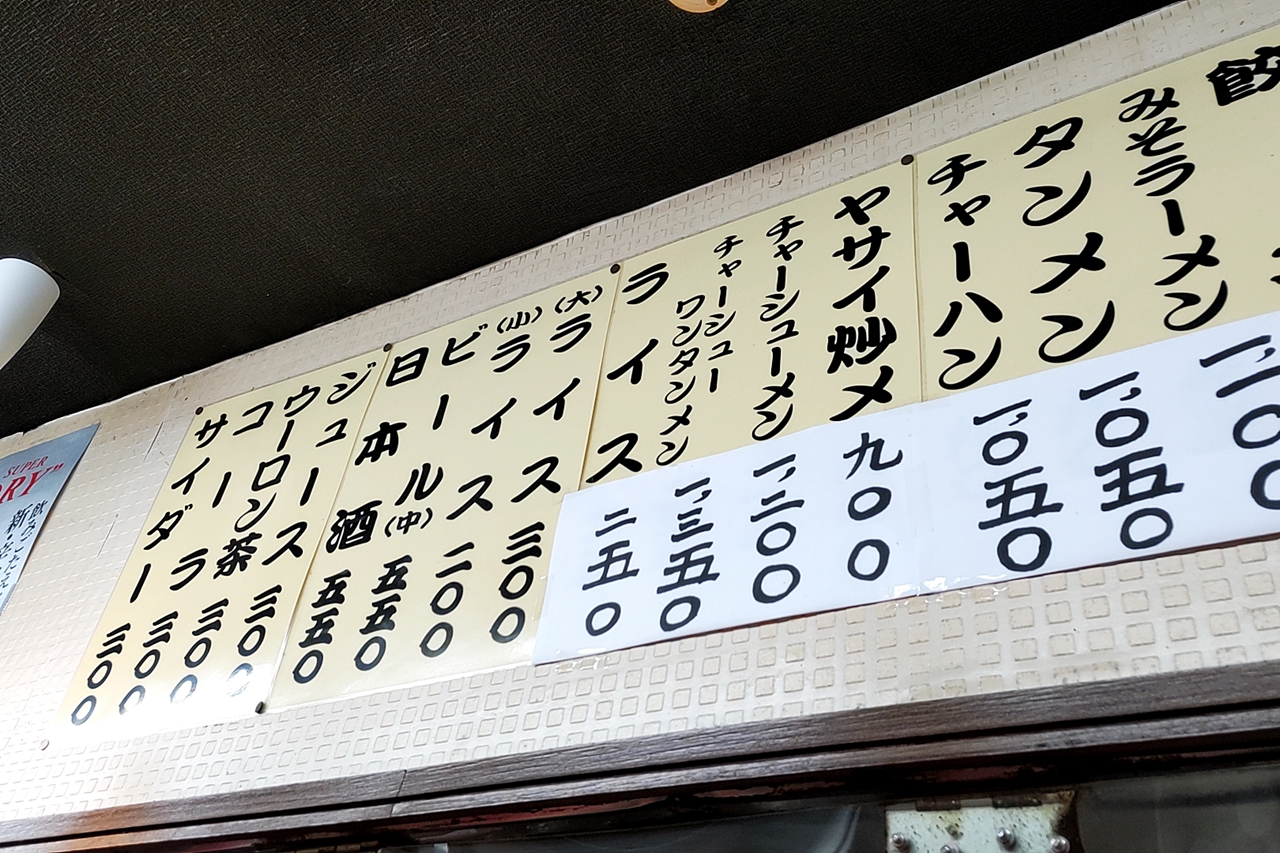 餃
みそラーメン 一、〇五〇
タンメン 一、〇五〇
チャーハン
ヤサイ炒メ 九〇〇
チャーシューメン 一、二〇〇
チャーシュー
ワンタンメン 一、三五〇
ライス 二五〇
(大)ライス 三〇〇
(小)ライス 二〇〇
ビール(中) 五五〇
日本酒 五五〇
ジュース 三〇〇
ウーロン茶 三〇〇
コーラ 三〇〇
サイダー 三〇〇
SUPER